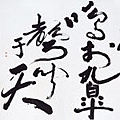 鳴於九皋
聲聞于天